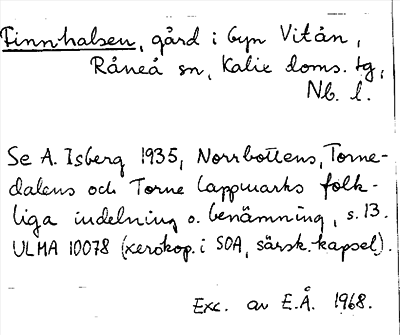 Finnhalsen, gård i byn Vitån,
Råneå sn, Kalix doms. tg,
Nb. l.
Se A. Isberg 1935, Norrbottens, Torne-
dalens och Torne lappmarks folk-
liga indelning o. benämning, s. 13.
ULMA 10078 (xerokop. i SOA, särsk. kapsel).
Exc. av E.Å. 1968.